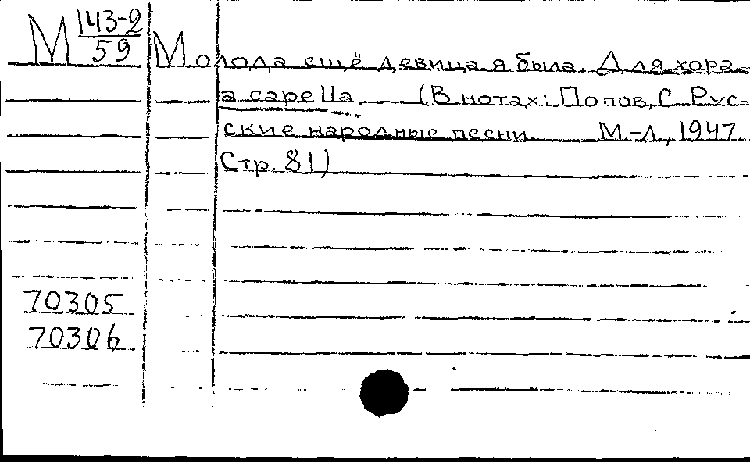 М 143-2
59
Молода ещё девица я была. Для хора
a capella. (В нотах: Попов, С. Рус-
ские народные песни. М.-Л., 1947.
Стр. 81)
70305
70306